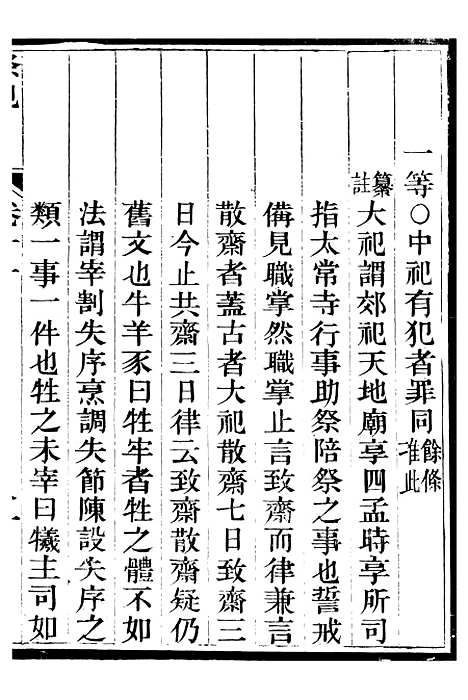 一等○中祀有犯者罪同餘條准此
纂註大祀謂郊祀天地廟享四孟時享所司
指太常寺行事助祭陪祭之事也誓戒
備見職掌然職掌止言致齋而律兼言
散齋者蓋古者大祀散齋七日致齋三
日今止共齋三日律云致齋散齋疑仍
舊文也牛羊豕曰牲牢者牲之體不如
法謂宰割失序烹調失節陳設失序之
類一事一件也牲之未宰曰犧主司如